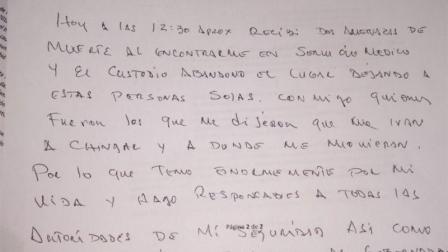 Hoy A las 12:30 Aprox Recibi Dos Amenazas DE
MUERTE AL ENCONTRARME EN SERVICIO MEDICO
Y EL CUSTODIO ABANDONO EL LUGAR DEJANDO A
ESTAS PERSONAS SOLAS. CONMIGO QUIENES
FUERON los QUE ME DIJERON QUE ME IVAN
A CHINGAR Y A DONDE ME MOVIERAN.
Por lo QUE TEMO ENORMEMENTE POR MI
VIDA Y HAGO RESPONSABLES A TODAS LAS
Página 2 de 2
AUTORIDADES DE MI SEGURIDAD ASI COMO